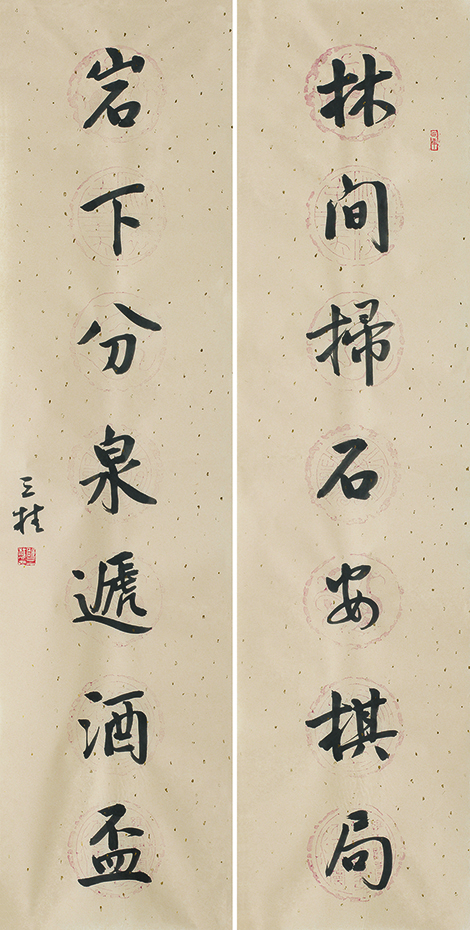 林间掃石安棋局
岩下分泉遞酒盃
三桂